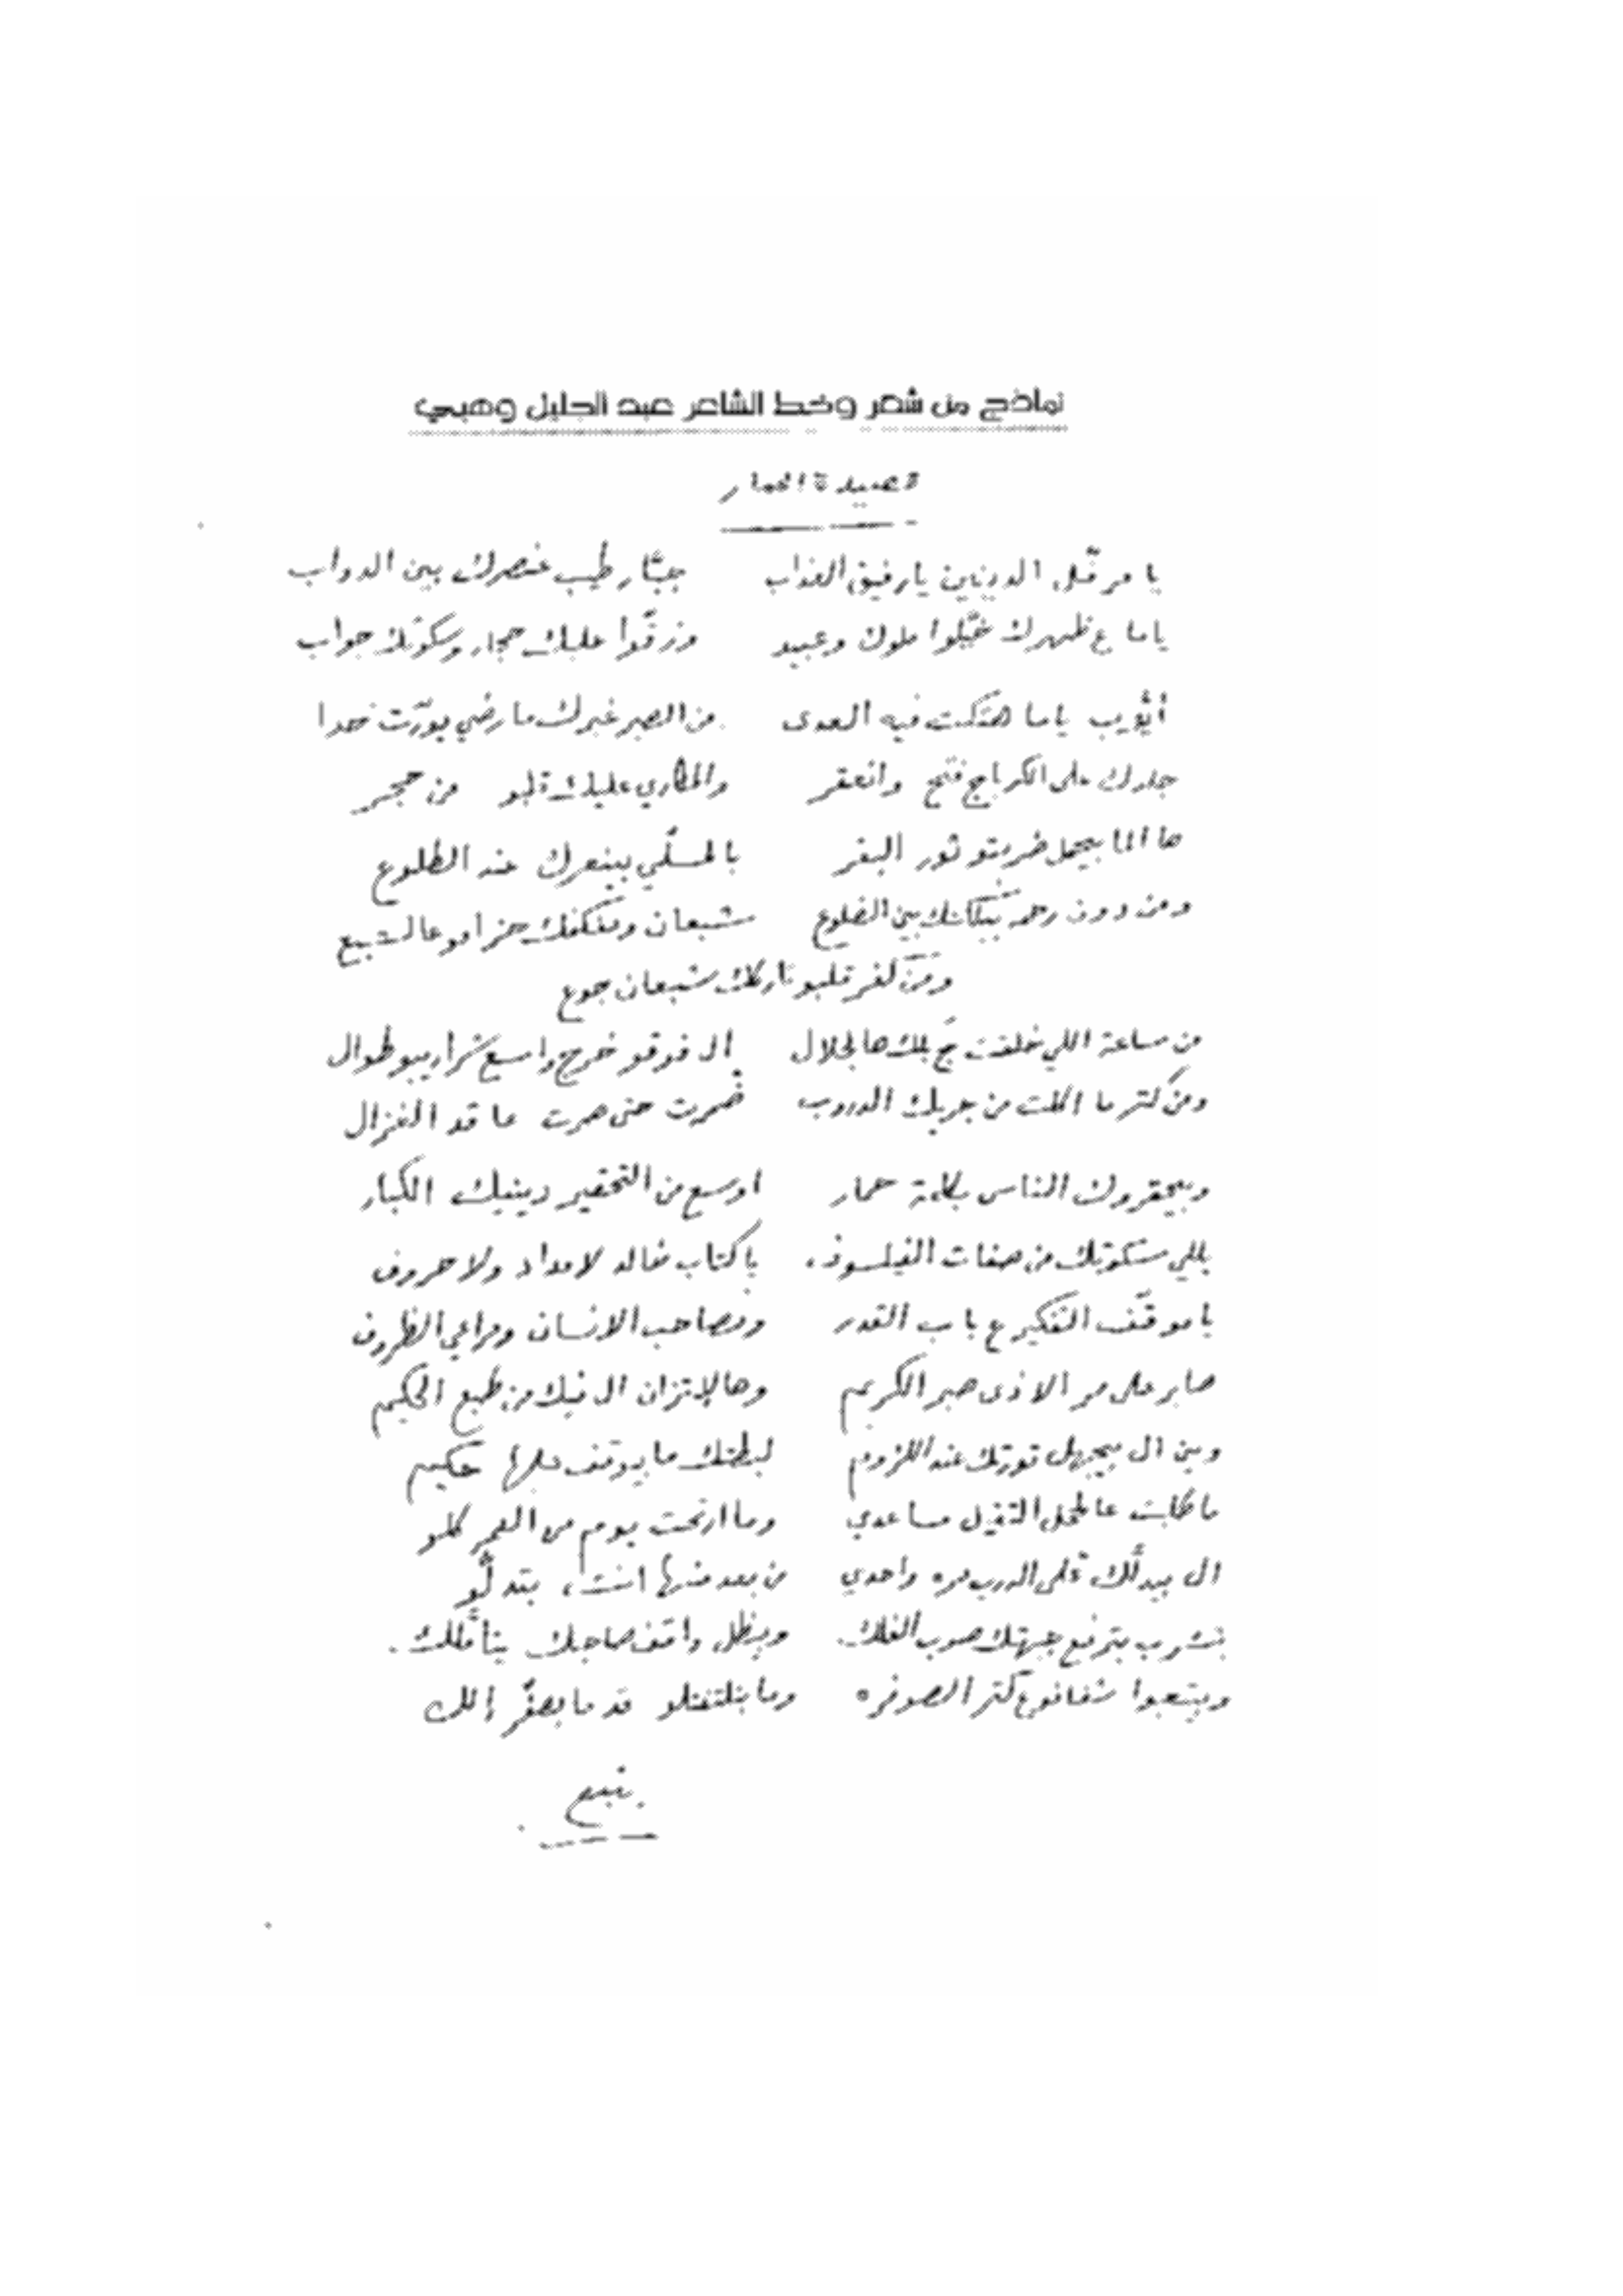 نماذج من شعر وخط الشاعر عبد الجليل وهبي
قصيدة الحمار
يا مرقّل الدينين يا رفيق العذاب جبّار طيب عنصرك بين الدواب
ياما ع ظهرك خيّلوا ملوك وعبيد وزقّوا عليك حجار وسكوتك جواب
أيّوب ياما هتكت فيه العدى من الصبر غيرك ما رضي يورّت حدا
جلدك على الكرباج فتح وانعقر والمكاري عليك قلبو من حجر
ها الما بيحمل ضربتو ثور البقر بالمسلّي بينعرك عند الطلوع
ومن دون رحمه بين الضلوع شبعان ومنكفك حزامو عالشبع
ومن كفر قلبو تاركك شبعان جوع
من ساعة اللي خلقت ها الجلال ال فوقو خرج واسع شراريبو طوال
ومن كتر ما اكلت من جريك الدروب ضمرت حتى صرت عا قد الغزال
وبيحقروك الناس بكلمة حمار اوسع من التحقير دينيك الكبار
يللي سكوتك من صفات الفيلسوف يا كتاب خالد لا مداد ولا حروف
يا موقّف التفكير ع باب القدر ومصاحب الانسان ومراعي الظروف
صابر على مر الاذى صبر الكريم وهالإتزان ال فيك من طبع الحكيم
وين ال بيجهل قوتك عند اللزوم لبطتك ما بيوقف قبالها حكيم
ما طلبت عا لحمل التقيل مساعدي وما ارتحت يوم من العمر كلو
ال بيدلّك على الدرب مره واحدي من بعد منها انت بتدلّو
بتشرب بترفع جبهتك صوب الفلك وبيظل واقف صاحبك يتأمّلك
وبيتعبوا شفافو ع كتر الصوفره وما بتلتفتلو قد ما يصفّر إلك
يتبع